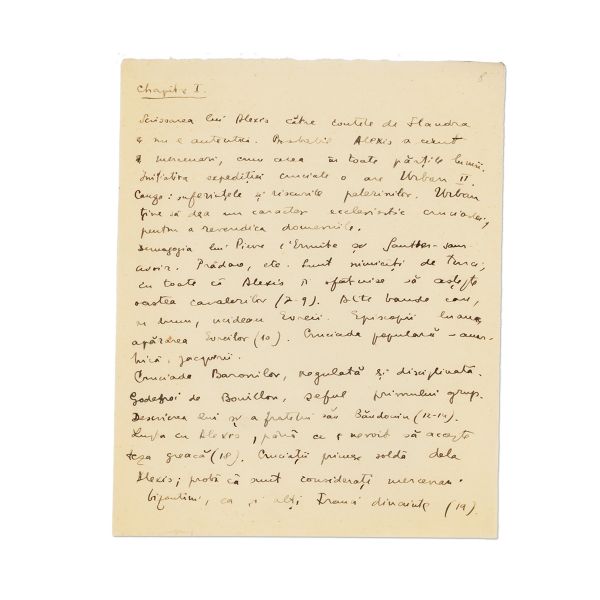 8
Chapitre I.
Scrisoarea lui Alexis către contele de Flandra
nu e autentică. Probabil Alexis a cerut
mercenari, cum cerea în toate părțile lumii.
Inițiativa expediției cruciate o are Urban II.
Cauza: suferințele și riscurile pelerinilor. Urban
ține să dea un caracter ecclesiastic cruciadei,
pentru a revendica domeniile.
Demagogia lui Pierre l'Ermite și Gauthier-sans-
avoir. Prădau, etc. Sunt nimiciți de turci,
cu toate că Alexis îi sfătuise să aștepte
oastea cavalerilor (7-9). Alte bande cari,
ucideau Evreii. Episcopii luau
apărarea Evreilor (10). Cruciada populară - anar-
hică; jacquerii.
Cruciada Baronilor, regulată și disciplinată.
Godefroi de Bouillon, șeful primului grup.
Descrierea lui și a fratelui său Baudouin (12-14).
Lupta cu Alexis, până ce e nevoit să accepte
teza greacă (18). Cruciații primesc soldă dela
Alexis; probă că sunt considerați mercenari
bizantini, ca și alți Franci dinainte (19).